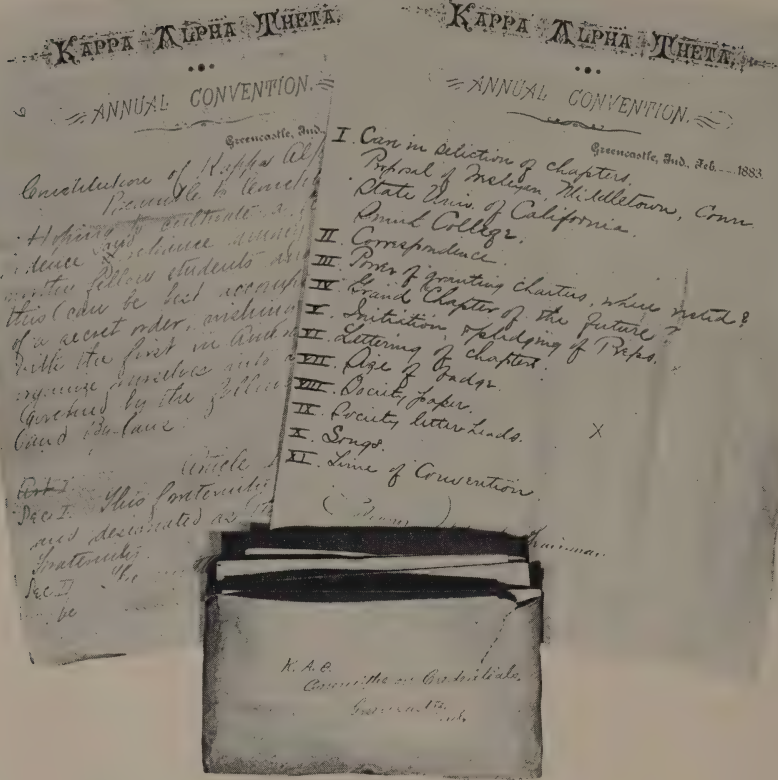 KAPPA ALPHA THETA.
ANNUAL CONVENTION.
Greencastle, Ind.
Constitution of Kappa Al
Preamble to Constit
Hoping to cultivate a
dence & reliance among
fellow students
this can be best accomp
of a secret order, wishing
with the first in
organize ourselves into a
Governed by the follow
and By-laws.
Article
Art I
Sec I. This fraternity
and designated as
fraternity.
Sec II The
be
KAPPA ALPHA THETA.
ANNUAL CONVENTION.
Greencastle, Ind., Feb. 1883
I. Care in selection of chapters.
Proposal of Wesleyan, Middletown, Conn
State Univ. of California.
Smith College.
II Correspondence.
III Power of granting charters, where vested?
IV Grand Chapter of the future?
V Initiation & pledging of Preps.
VI Lettering of Chapters.
VII Size of badge.
VIII Society paper.
IX Society letter heads.
X Songs.
XI Time of Convention.
X
K. A. Θ.
Committee on Credentials,